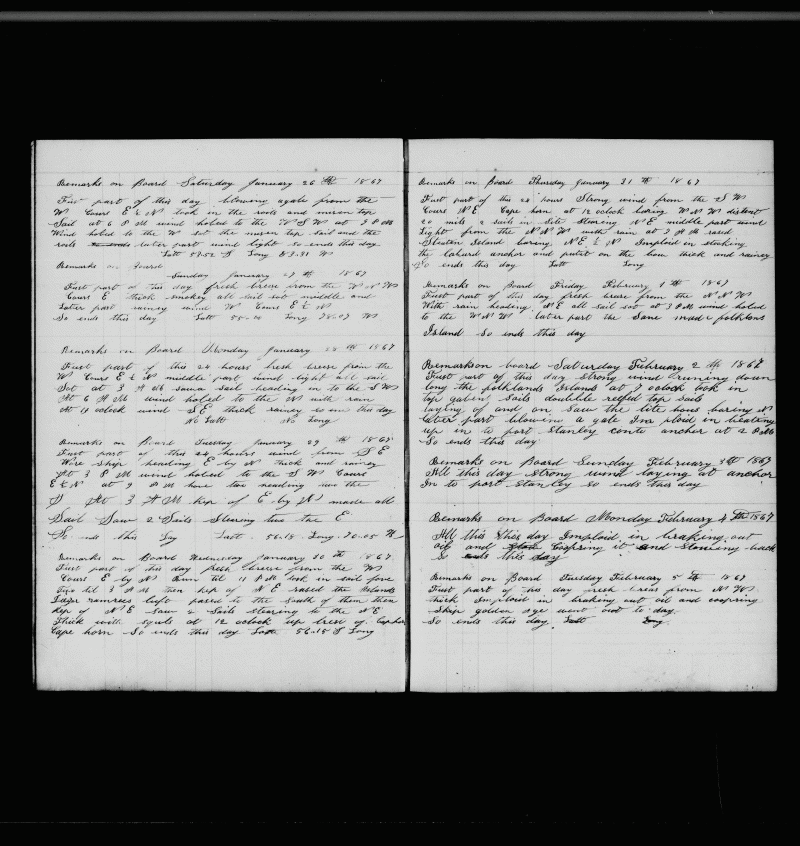 Remarks on Board Saturday January 26 th 1867
First part of this day blowing agale from the
W Cours E & N took in the roofs and missen top
Sail at 6 P M wind holed to the W S W at 8 P M
Wind holed to the W Sot the missen top sail and the
roofs later part wind light so ends this day
Latt 57.52 S Long 83.31 W
Remarks on Board
Sunday January 27 th 1867
First part of this day fresh breese from the W N W
Cours E thick smokey all sail sot middle and
Later part rainey wind W Cours E & N
So ends this day Latt Long 78.07 W
Remarks on Board Monday January 28 th 1867
First part of this 24 hours fresh breese from the
W Cours E & N middle part wind light all sail
Sot at 3 A M sawa sail heading in to the S W
At 6 A M wind holed to the N with rain
At 11 oclock wind S E thick rainey so ends this day
No Latt No Long
Remarks on Board Tuesday January 29 th 1867
First part of this 24 hours wind from S E
Wire Ship heading E by N thick and rainey
At 3 P M wind holed to the S W Cours
E & N at 9 P M hove two heading two the
S At 3 A M kep of E by N made all
Sail Saw 2 Sails Stearing two the E
So ends this Day Latt 56.18 Long 70.05 W
Remarks on Board Wednesday January 30 th 1867
First part of this day fresh breese from the W
Cours E by N Run til 11 P M took in sail fore
til 3 A M then kep of N E rased the Islands
ramrees left pased to the South of them then
kep of N E Saw 2 Sails stearing to the N E
Thick with sqals at 12 oclock up brest of Caphor
Cape horn So ends this day Latt 56.15 S Long
Remarks on Board Thursday January 31 th 1867
First part of this 24 hours Strong wind from the S W
Cours N E Cape horn at 12 oclock baring W N W distent
20 2 sails in Site Stearing N E middle part wind
Light from the N N W with rain at 3 A M rased
Staten Island baring N E & N Imploid in stocking
the laburd anchor and putit on the bow thick and rainey
So ends this day Latt Long
Remarks on Board Friday February 1 th 1867
First part of this day fresh brease from the N N W
With rain heading N E all sail sot at 3 P M wind holed
to the W N W later part the Same made folklans
Island So ends this day
Remarkson board Saturday February 2 th 1867
First part of this day strong wind runing down
long the folklands Islands at 7 oclock took in
top galen Sails doubble refed top sails
laying of and on Saw the lite hous baring N
later part blowens a gale Im ploid in beating
up in to port Stanley come anchor at 2 P M
So ends this day
Remarks on Board Sunday February 3 th 1867
All this day strong wind laying at anchor
In to port Stanley so ends this day
Remarks on Board Monday February 4 th 1867
All this this day Imploid in braking out
oil and Coopring it and Stowing back
So ends this day
Remarks on Board Tuesday February 5 th 1867
First part of this day fresh breas from N W
thick Imploid in braking out oil and coopring
Ship golden age went out to day
So ends this day Latt Long